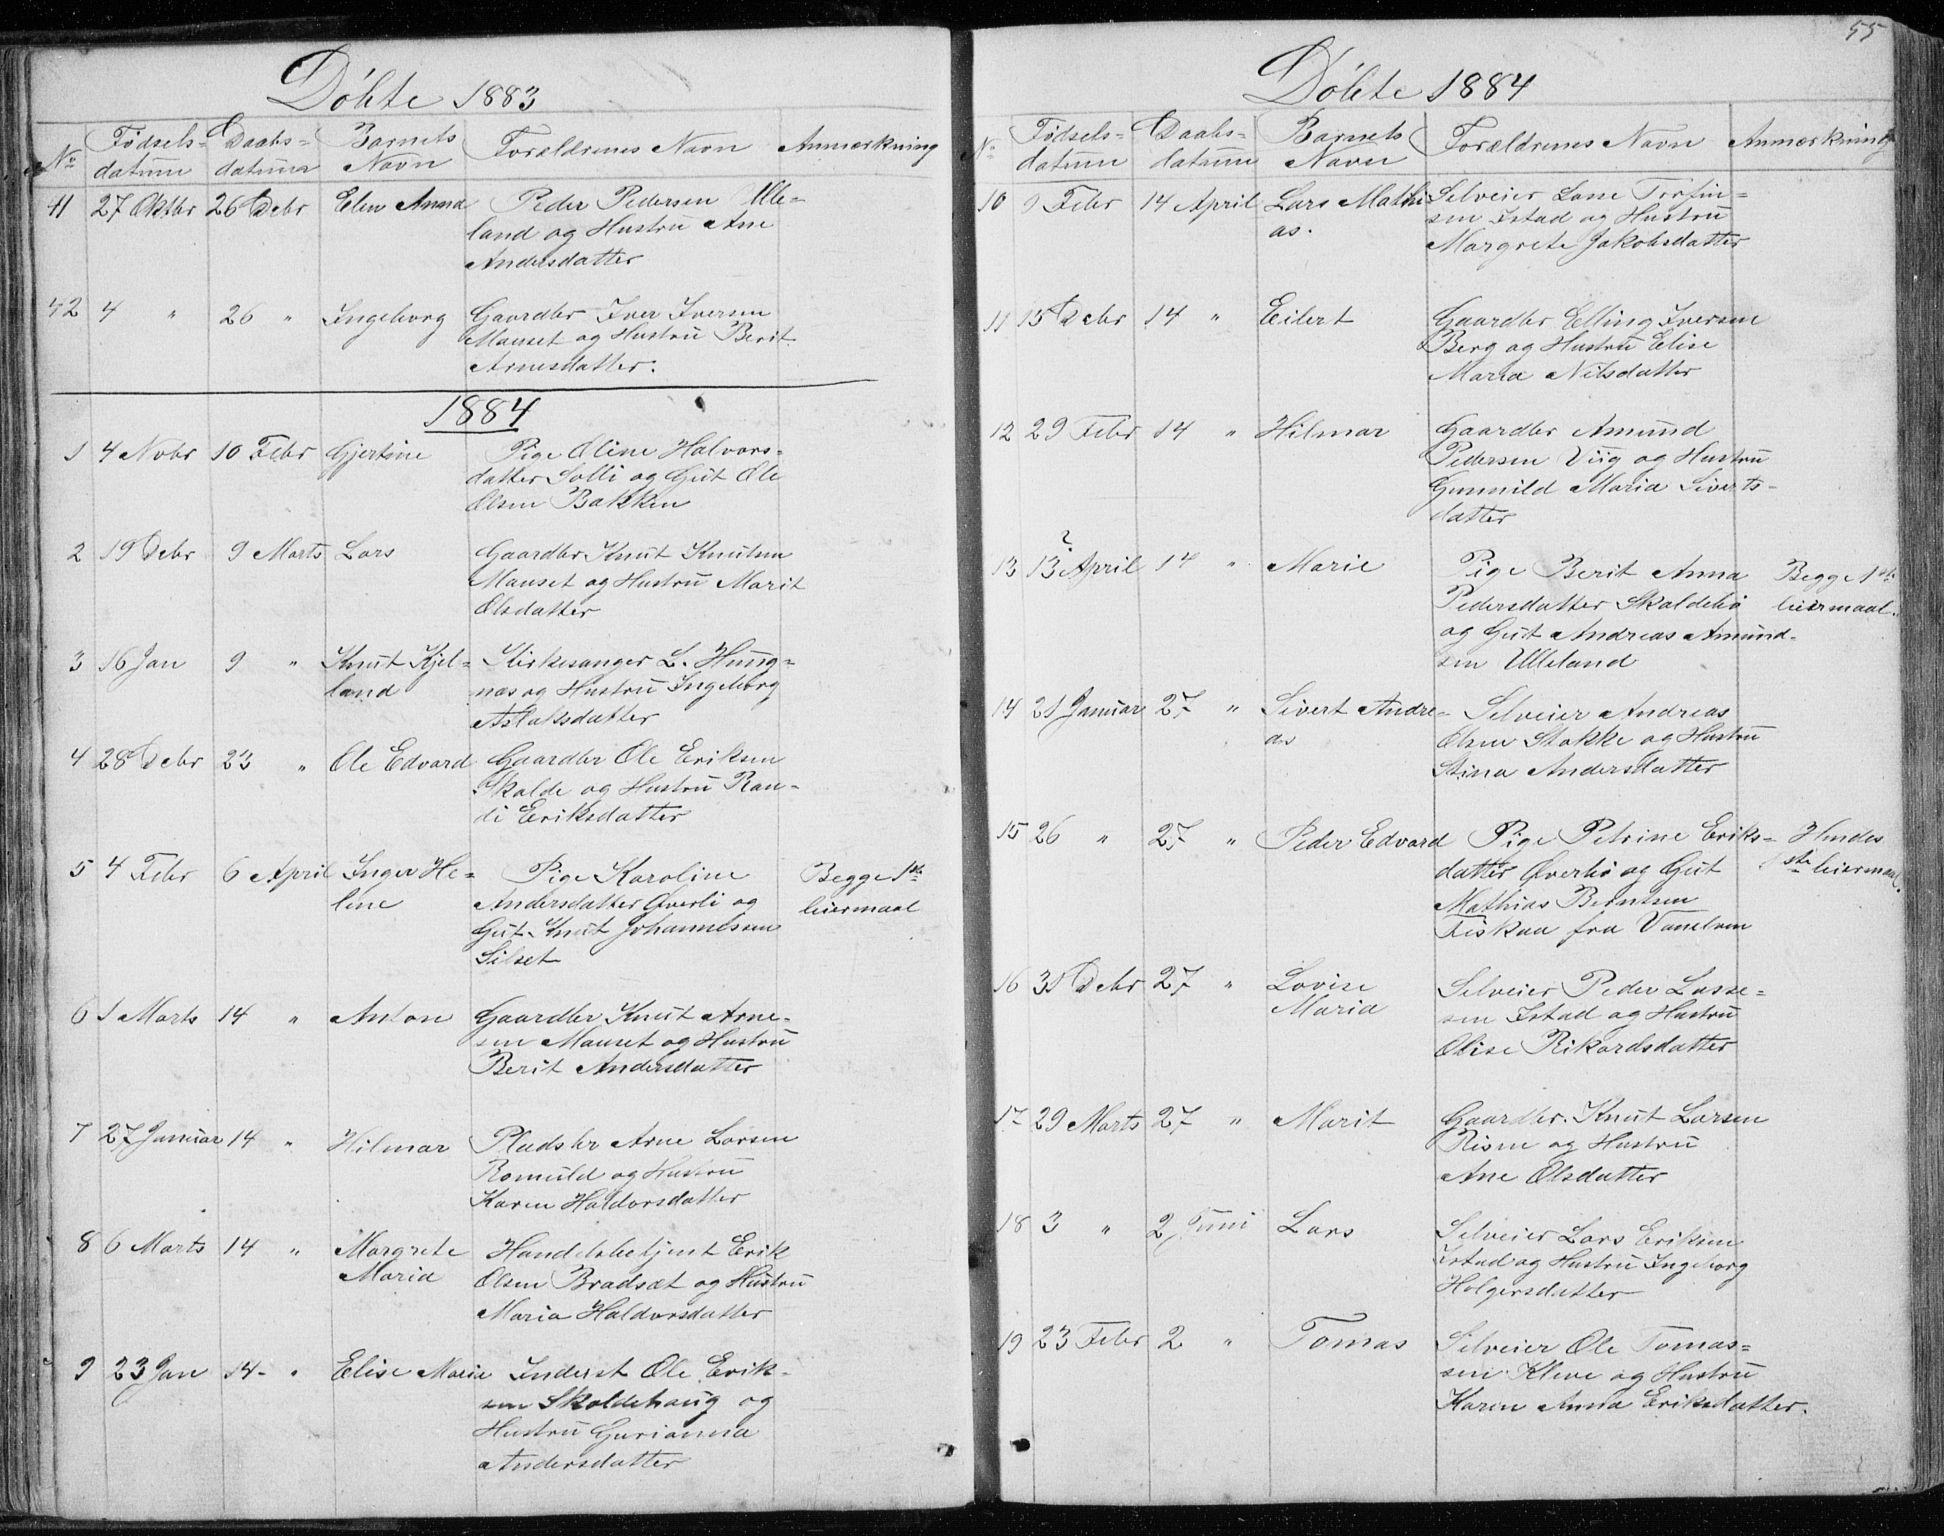 Döbte 1883
No Fødsels- Daabs- Barnets Forældrenes Navn Anmærkning
datum datum Navn
41 27 Oktbr 26 Debr Elen Anna Peder Pedersen Ulle-
land og Hustru Ane
Andersdatter
42 4 " 26 " Ingeborg Gaardbr Iver Iversen
Mauset og Hustru Berit
Arnesdatter.
1884
1 4 Nobr 10 Febr Gjertine Pige Oline Halvors-
datter Solli og Gut Ole
Olsen Bakken
2 19 Debr 9 Marts Lars Gaardbr Knut Knutsen
Mauset og Hustru Marit
Olsdatter
3 16 Jan 9 " Knut Kjel- Kirkesanger L. Hung-
land næs og Hustru Ingeborg
Aslaksdatter
4 28 Debr 23 " Ole Edvard Gaardbr Ole Eriksen
Skalde og Hustru Ran-
di Eriksdatter
5 4 Febr 6 April Inger He- Pige Karoline Begge 1ste
line Andersdatter Øverli og leiermaal
Gut Knut Johannessen
Silset
6 1 Marts 14 " Anton Gaardbr Knut Arne-
sen Mauset og Hustru
Berit Andersdatter
7 27 Januar 14 " Hilmar Pladsbr Arne Larsen
Romuld og Hustru
Karen Haldorsdatter
8 6 Marts 14 " Margrete Handelsbetjent Erik
Maria Olsen Bradsæt og Hustru
Maria Haldorsdatter
9 23 Jan 14 " Elise Marie Inderst Ole Erik-
sen Skaldehaug og
Hustru Gurianna
Andersdatter
55
Döbte 1884
No Fødsels- Daabs- Barnets Forældrenes Navn Anmærkning
datum datum Navn
10 9 Febr 14 April Lars Mathi- Selveier Lars Torfin-
as. sen Istad og Hustru
Margrete Jakobsdatter
11 15 Debr 14 " Eilert Gaardbr Elling Iversen
Berg og Hustru Elise
Maria Nilsdatter
12 29 Febr 14 " Hilmar Gaardbr Amund
Pedersen Viig og Hustru
Gunnild Maria Siverts-
datter
?
13 13 April 14 " Marie Pige Berit Anna Begge 1ste
Pedersdatter Skaldebø leiermaal.
og Gut Andreas Amund-
sen Ulleland
14 21 Januar 27 " Sivert Andre- Selveier Andreas
as Olsen Stokke og Hustru
Stina Andersdatter
15 26 " 27 " Peder Edvard Pige Petrine Eriks- Hendes
datter Øverbø og Gut 1ste leiermaal.
Mathias Berntsen
Fiskaa fra Vanelven
16 31 Debr 27 " Lovise Selveier Peder Lasse-
Maria sen Istad og Hustru
Olise Rikardsdatter
17 29 Marts 27 " Marit Gaardbr. Knut Larsen
Risen og Hustru
Ane Olsdatter
18 3 " 2 Juni Lars Selveier Lars Eriksen
Istad og Hustru Ingeborg
Holgersdatter
19 23 Febr 2 " Tomas Selveier Ole Tomas-
sen Kleve og Hustru
Karen Anna Eriksdatter.